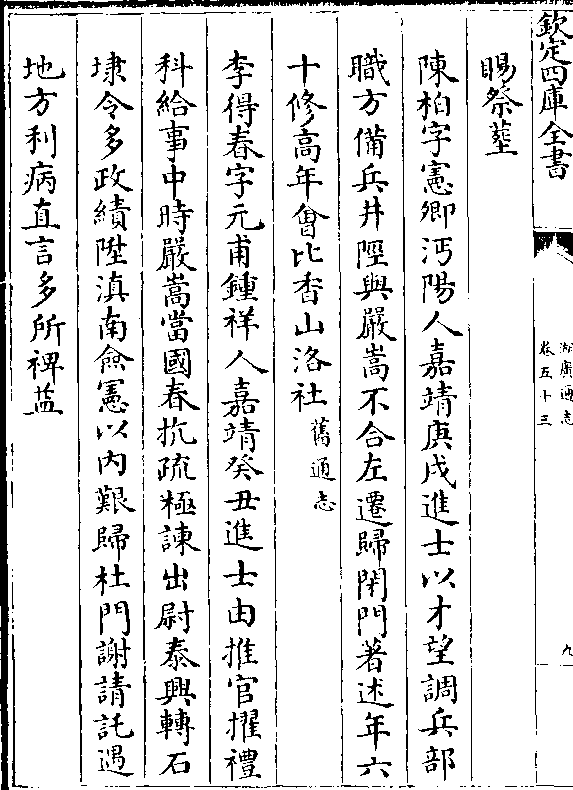 欽定四庫全書
湖廣通志
卷五十三
九
賜祭塟
陳柏字憲卿沔陽人嘉靖庚戌進士以才望調兵部
職方備兵井陘與嚴嵩不合左遷歸閉門著述年六
十修高年㑹比香山洛社舊通志
李得春字元甫鍾祥人嘉靖癸丑進士由推官擢禮
科給事中時嚴嵩當國春抗疏極諫出尉泰興轉石
埭令多政績陞滇南僉憲以内艱歸杜門謝請託遇
地方利病直言多所裨益